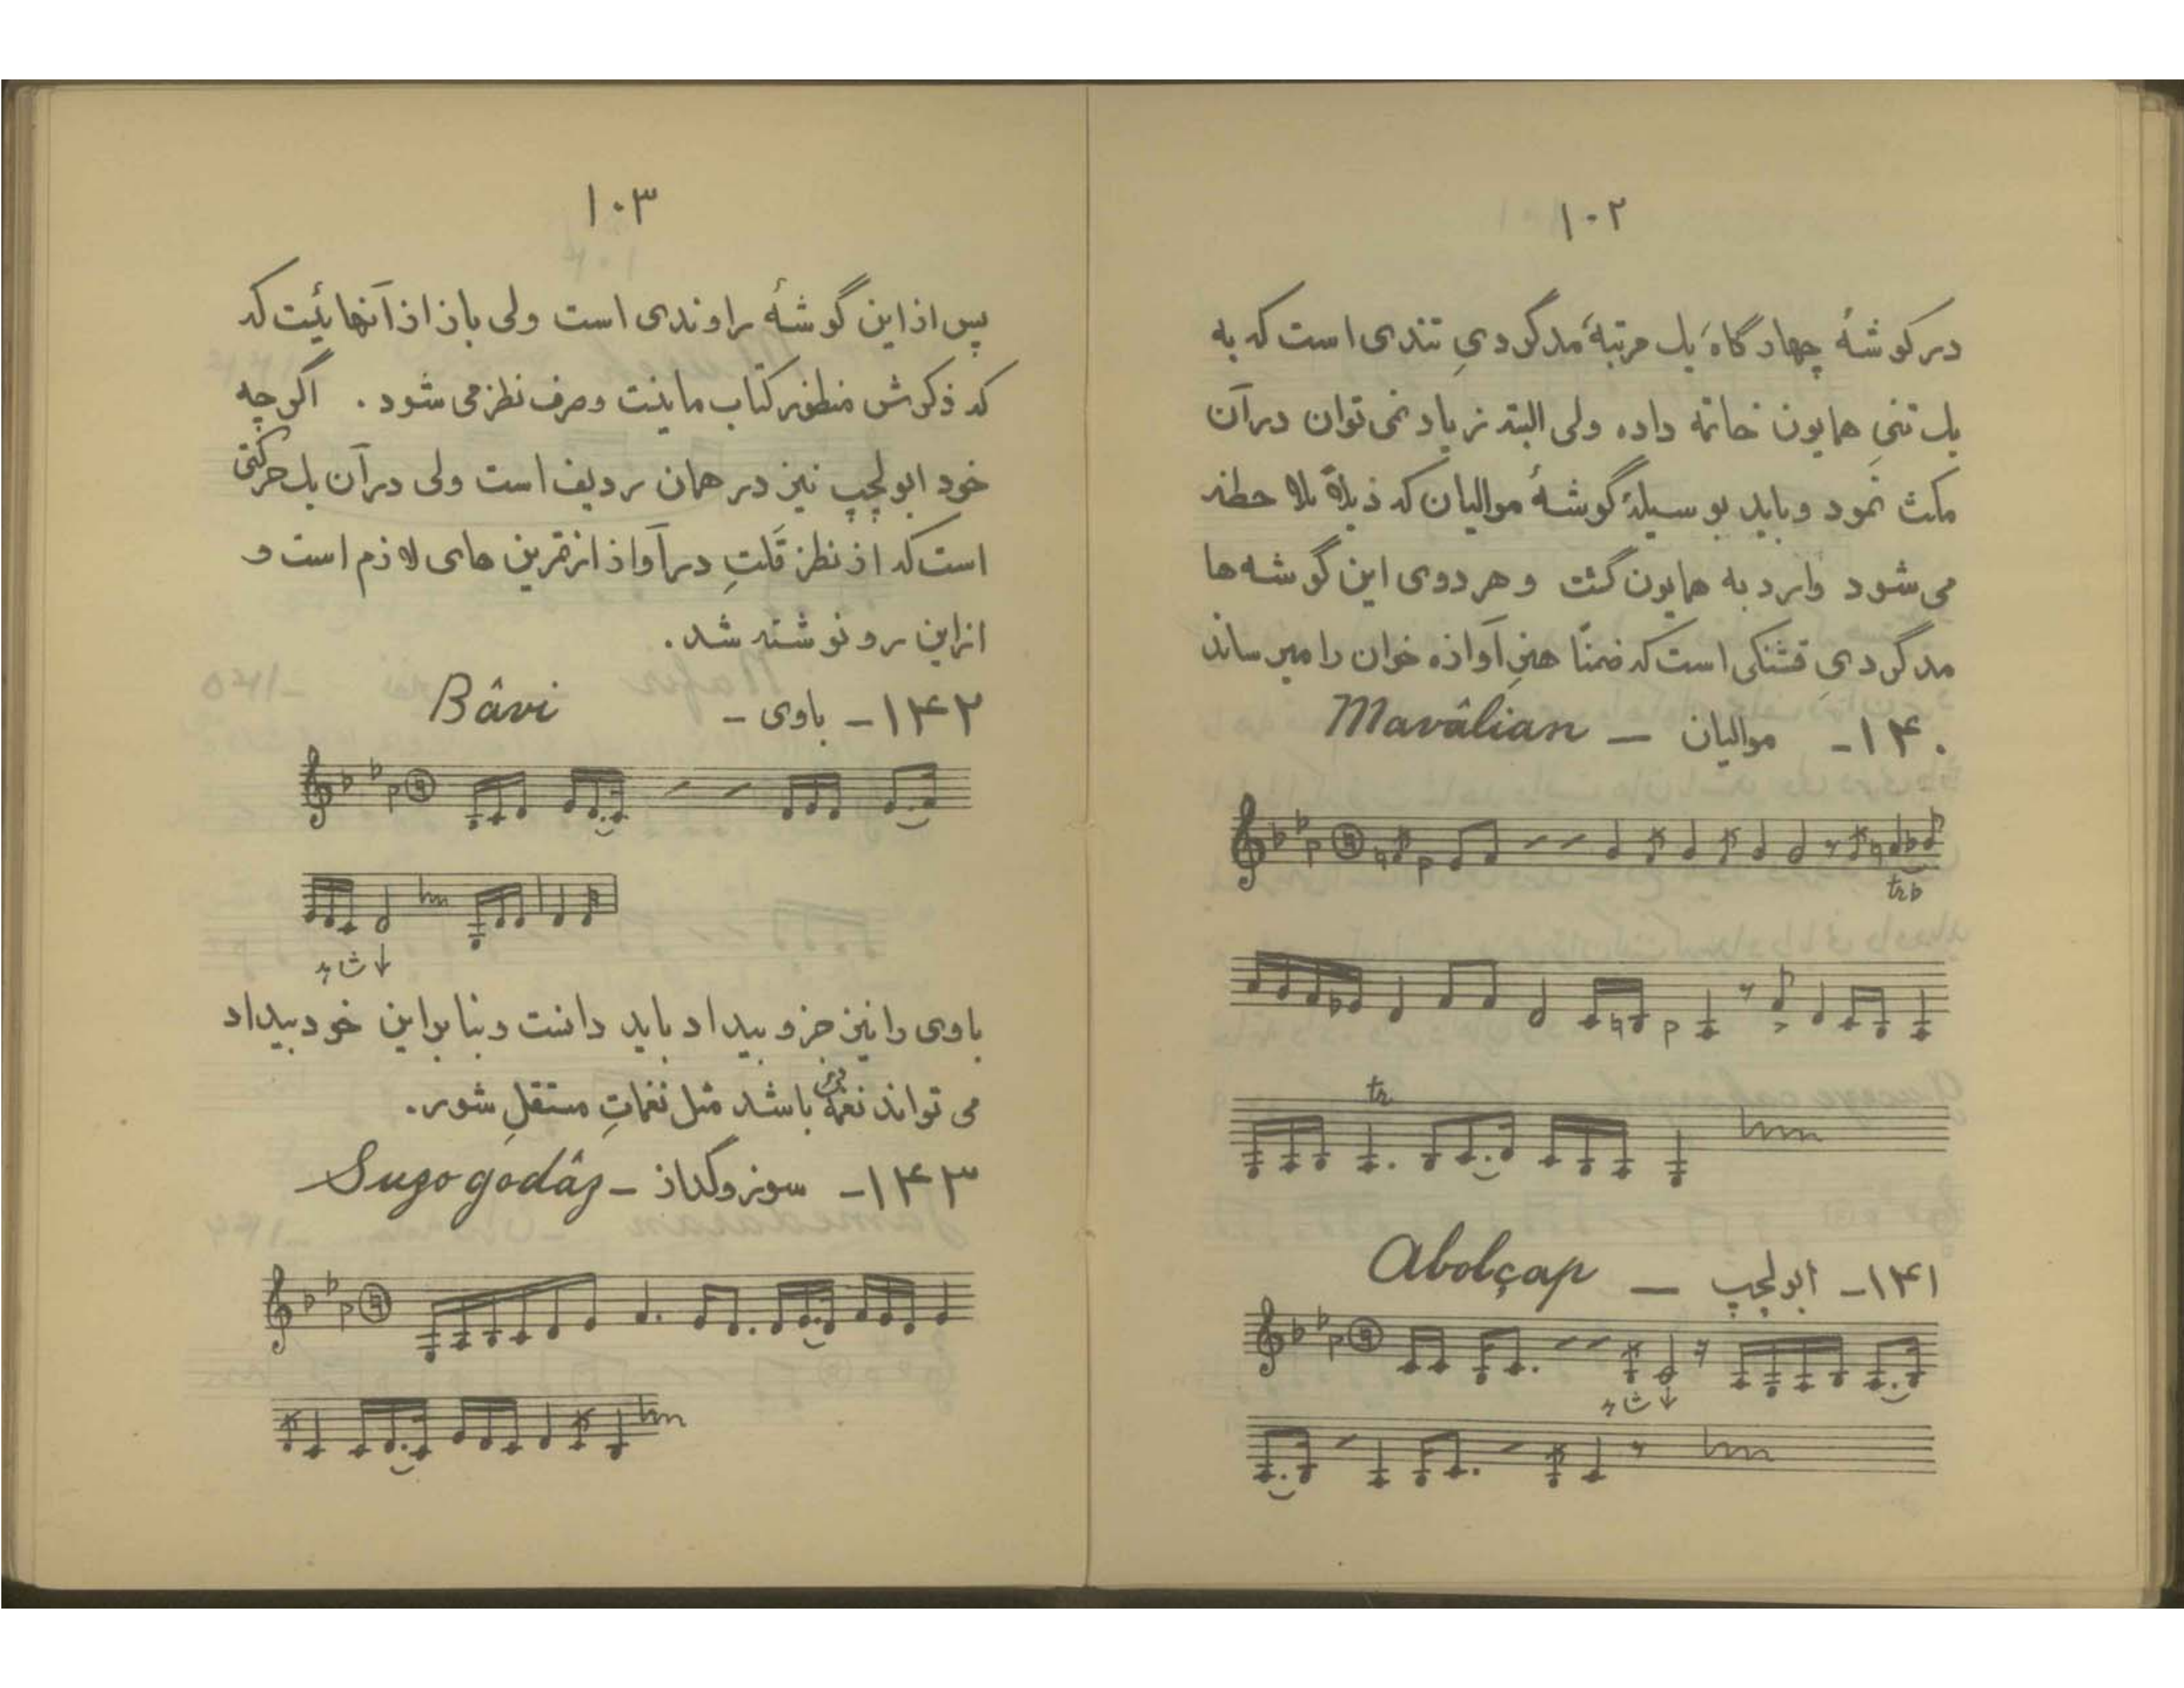 ۱۰۲
در گوشهٔ چهارگاه یک مرتبه مدگردیِ تندی است که به
یک تنیِ همایون خاتمه داده ولی البته زیاد نمی توان در آن
مکث نمود و باید بوسیلهٔ گوشهٔ موالیان که ذیلاً ملاحظه
می شود وارد به همایون گشت و هر دوی این گوشه ها
مدگردیِ قشنگی است که ضمناً هنرِ آوازه خوان را میرساند
۱۴۰- موالیان — Mavâlian
tr♭
tr
۱۴۱- ابولچپ — Abolçap
۱۰۳
پس از این گوشهٔ راوندی است ولی باز از آنهائیست که
که ذکرش منظور کتاب ما نیست و صرف نظر می شود . اگر چه
خود ابولچپ نیز در همان ردیف است ولی در آن یک حرکتی
است که از نظر قلتِ در آواز از تمرین های لازم است و
از این رو نوشته شد .
۱۴۲- باوی - Bâvi
باوی را نیز جزو بیداد باید دانست و بنابراین خود بیداد
می تواند نغمه باشد مثل نغماتِ مستقلِ شور .
۱۴۳- سوز و گداز - Suzogodâz